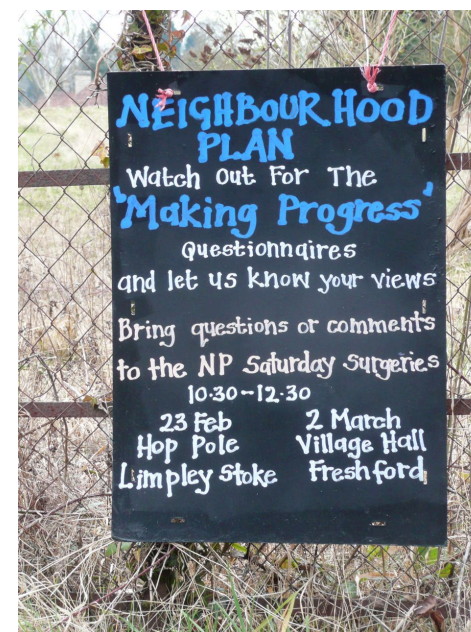 NEIGHBOURHOOD
PLAN
Watch Out For The
'Making Progress'
Questionnaires
and let us know your views
Bring questions or comments
to the NP Saturday surgeries
10.30-12.30
23 Feb 2 March
Hop Pole Village Hall
Limpley Stoke Freshford